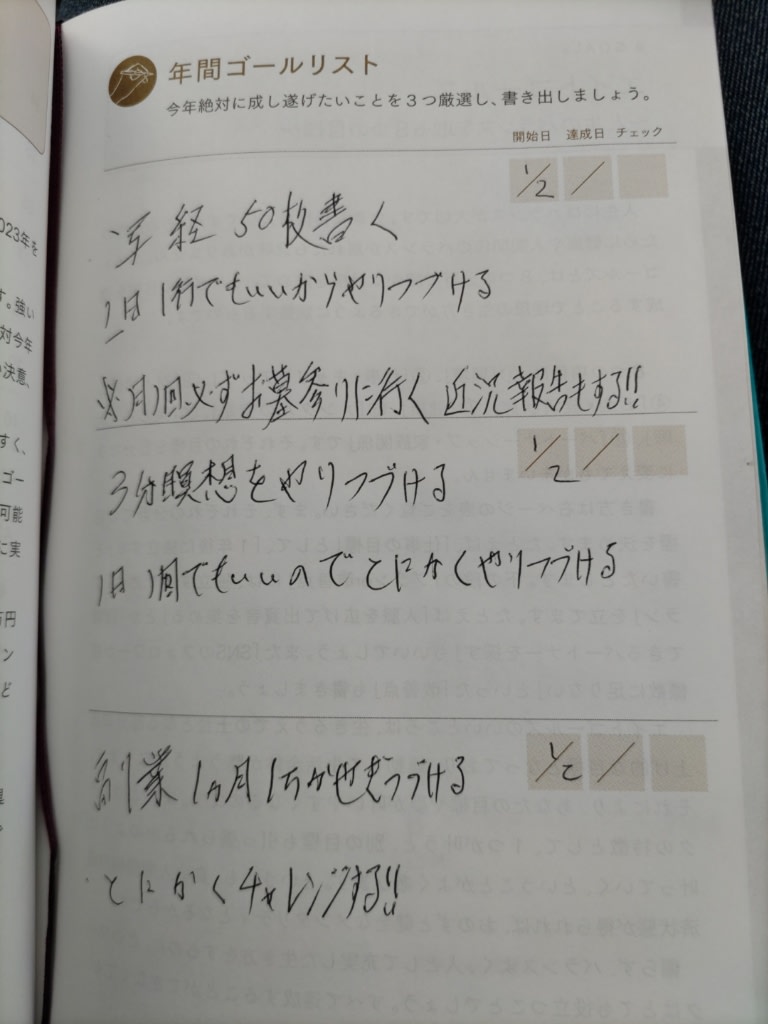 年間ゴールリスト
今年絶対に成し遂げたいことを3つ厳選し、書き出しましょう。
開始日 達成日 チェック
1/2 /
写経 50枚書く
1日1行でもいいからやりつづける
月1回必ずお墓参りに行く 近況報告もする!!
1/2 /
3分瞑想をやりつづける
1日1回でもいいのでとにかくやりつづける
1/2 /
副業1ヵ月1万かせぎつづける
とにかくチャレンジする!!